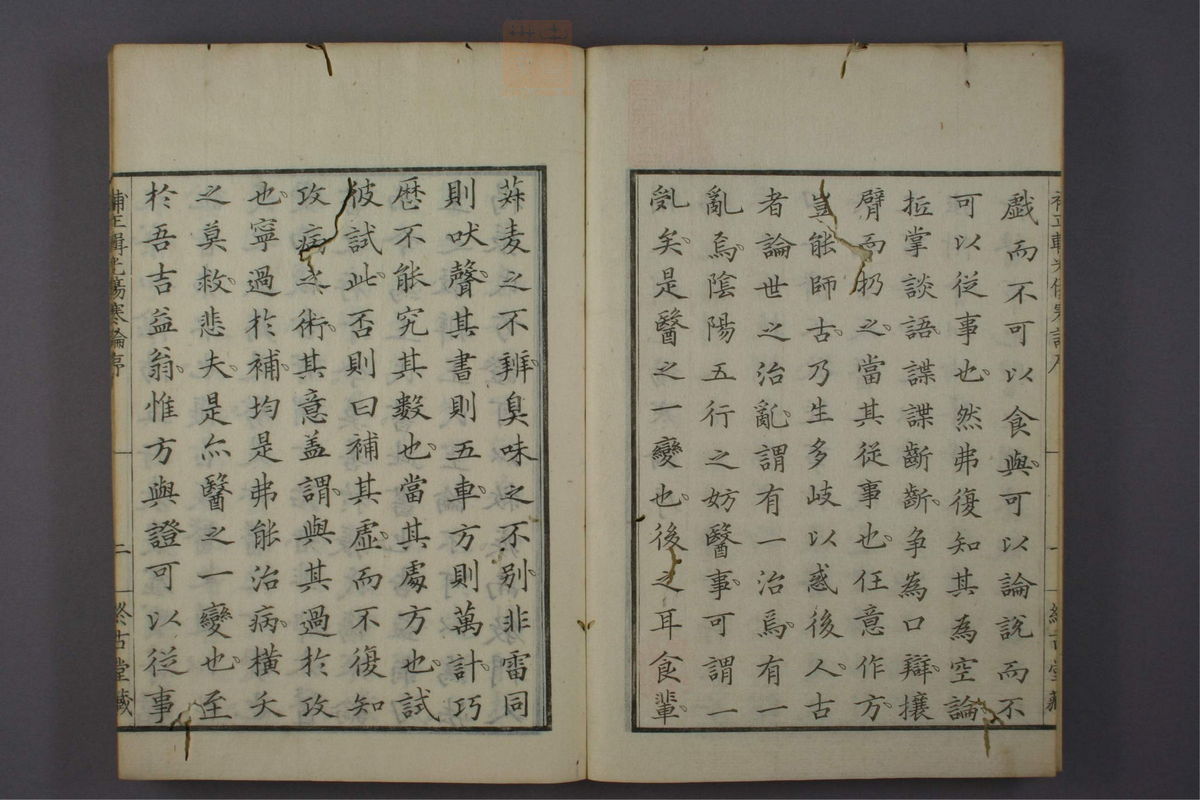 戲而不可以食與可以論說而不
可以從事也然弗復知其為空論
拡掌談語諜諜齗齗争為口辯攘
臂而扔之當其從事也任意作方
豈能師古乃生多岐以惑後人古
者論世之治亂謂有一治焉有一
亂焉陰陽五行之妨醫事可謂一
乱矣是醫之一變也後之耳食輩
菽麦之不辨臭味之不别非雷同
則吠聲其書則五車方則萬計巧
歷不能究其數也當其處方也試
彼試此否則曰補其虛而不復知
攻病之術其意盖謂與其過於攻
也寧過於補均是弗能治病橫夭
之莫救悲夫是亦醫之一變也至
於吾吉益翁惟方與證可以従事
補正輯光傷寒論序
二
終古堂藏